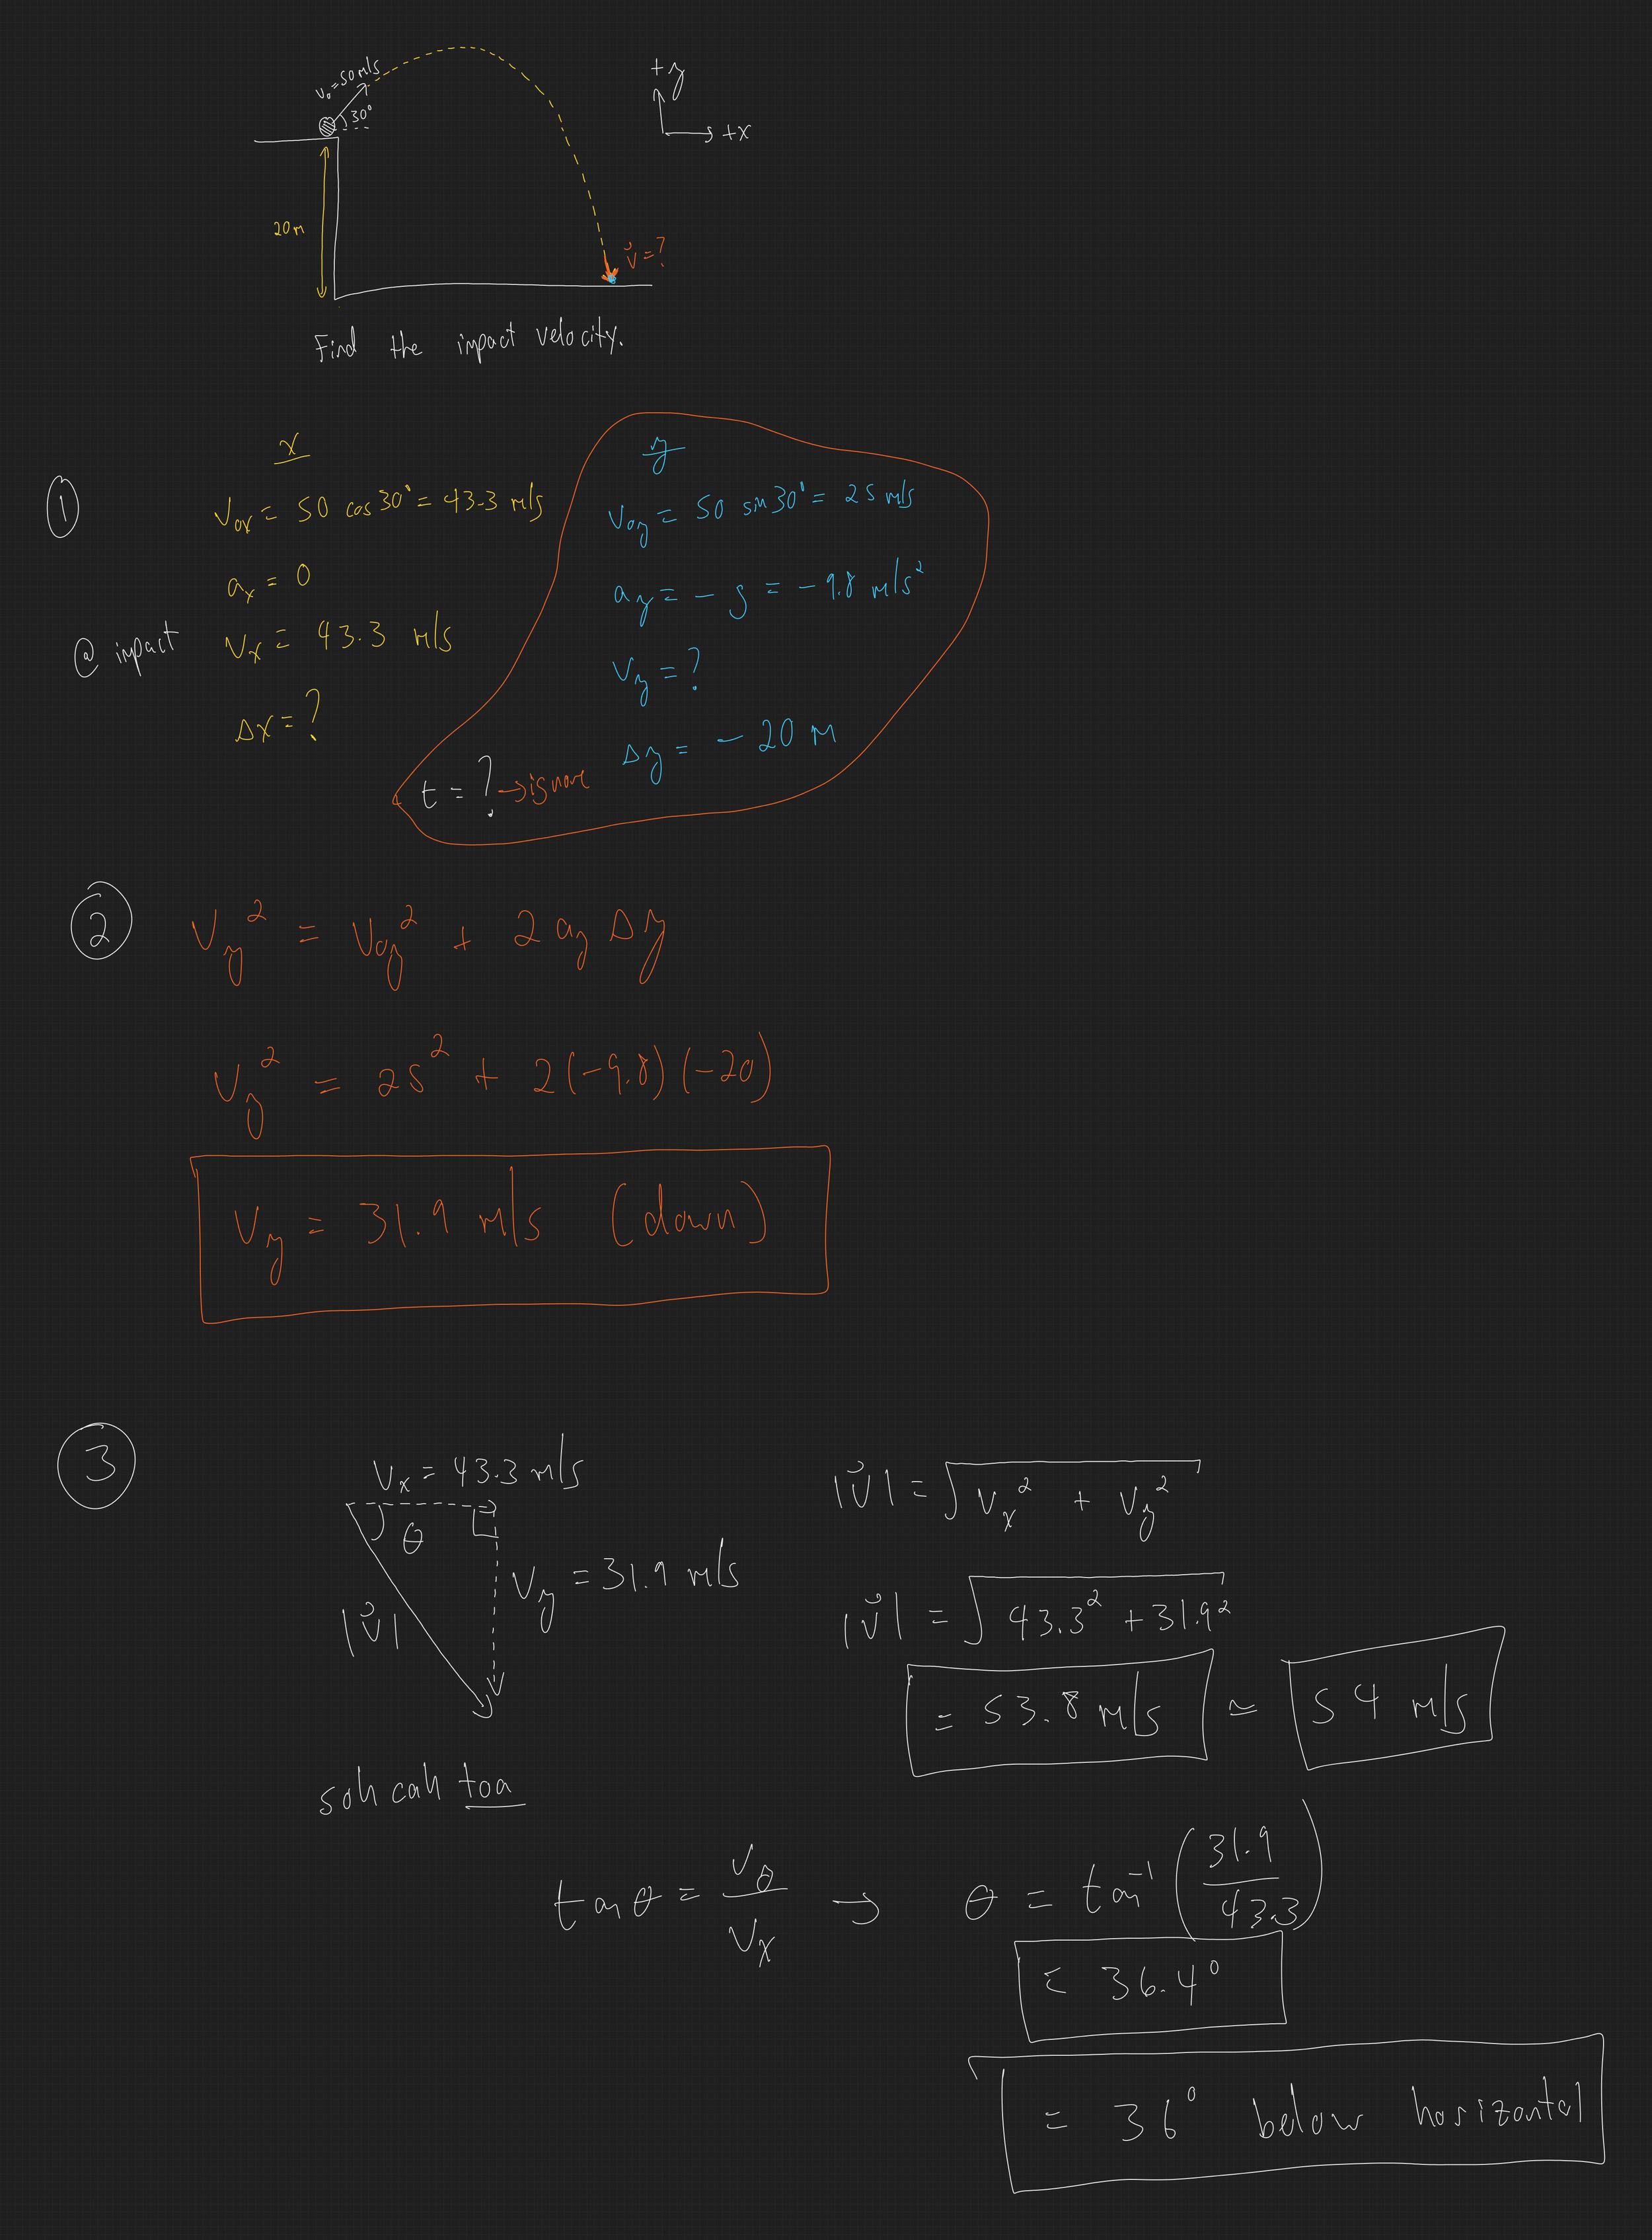 v₀ = 50 m/s
30°
+y
+x
20 m
v⃗ = ?
Find the impact velocity.
①
x
V₀ₓ = 50 cos 30° = 43.3 m/s
aₓ = 0
@ impact Vₓ = 43.3 m/s
Δx = ?
y
V₀y = 50 sin 30° = 25 m/s
ay = -g = -9.8 m/s²
Vy = ?
Δy = -20 m
t = ? → ignore
②
Vy² = V₀y² + 2 ay Δy
Vy² = 25² + 2(-9.8)(-20)
Vy = 31.9 m/s (down)
③
Vₓ = 43.3 m/s
θ
Vy = 31.9 m/s
|v⃗|
soh cah toa
|v⃗| = √(Vₓ² + Vy²)
|v⃗| = √(43.3² + 31.9²)
= 53.8 m/s ≃ 54 m/s
tan θ = Vy/Vₓ → θ = tan⁻¹(31.9/43.3)
= 36.4°
= 36° below horizontal